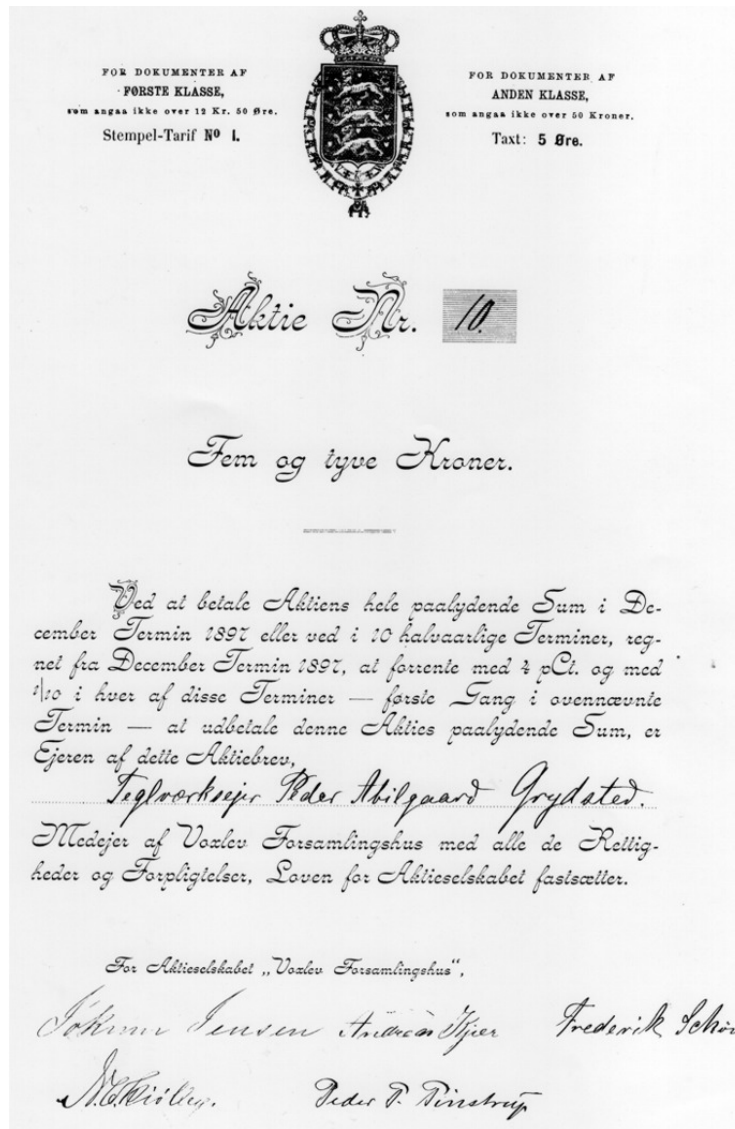 FOR DOKUMENTER AF
FØRSTE KLASSE,
som angaa ikke over 12 Kr. 50 Øre.
Stempel-Tarif Nº 1.
FOR DOKUMENTER AF
ANDEN KLASSE,
som angaa ikke over 50 Kroner.
Taxt: 5 Øre.
Aktie Nr. 10.
Fem og tyve Kroner.
Ved at betale Aktiens hele paalydende Sum i De-
cember Termin 1897 eller ved i 10 halvaarlige Terminer, reg-
net fra December Termin 1897, at forrente med 4 pCt. og med
1/10 i hver af disse Terminer — første Gang i ovennævnte
Termin — at udbetale denne Akties paalydende Sum, er
Ejeren af dette Aktiebrev,
Teglværksejer Peder Abilgaard Grydsted.
Medejer af Voxlev Forsamlingshus med alle de Rettig-
heder og Forpligtelser, Loven for Aktieselskabet fastsætter.
For Aktieselskabet „Voxlev Forsamlingshus“,
Jensen Andreas Kjær Frederik
Peder P. Pinstrup